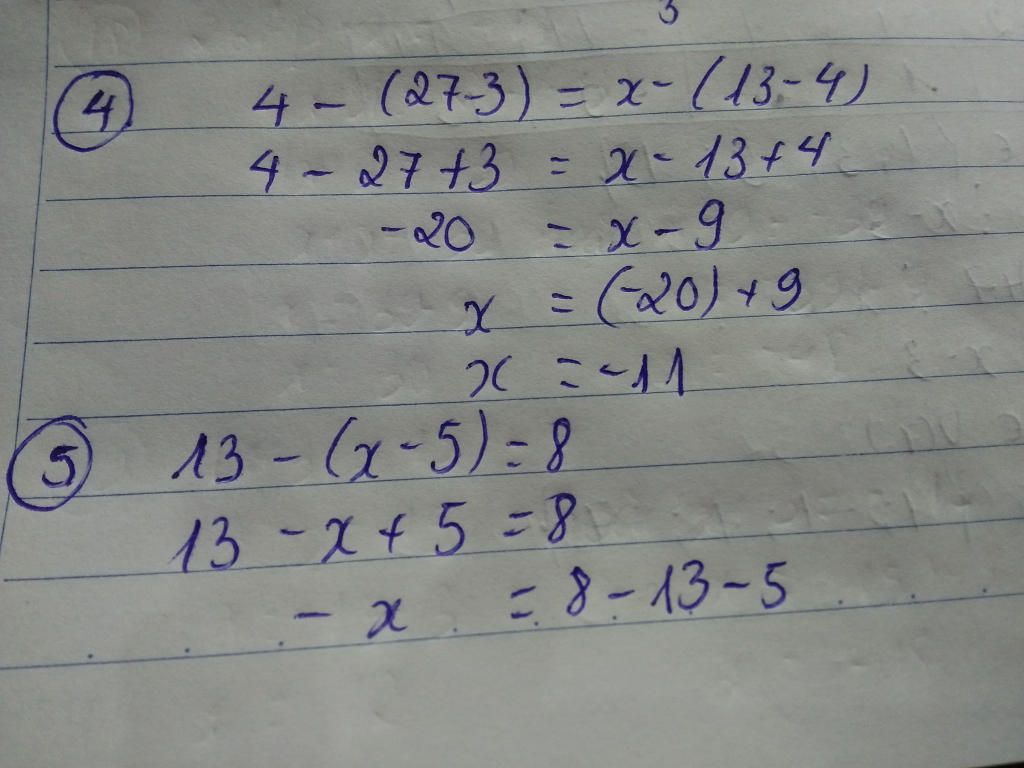 3
4 4 - (27-3) = x - (13-4)
4 - 27 + 3 = x - 13 + 4
-20 = x - 9
x = (-20) + 9
x = -11
5 13 - (x - 5) = 8
13 - x + 5 = 8
- x = 8 - 13 - 5